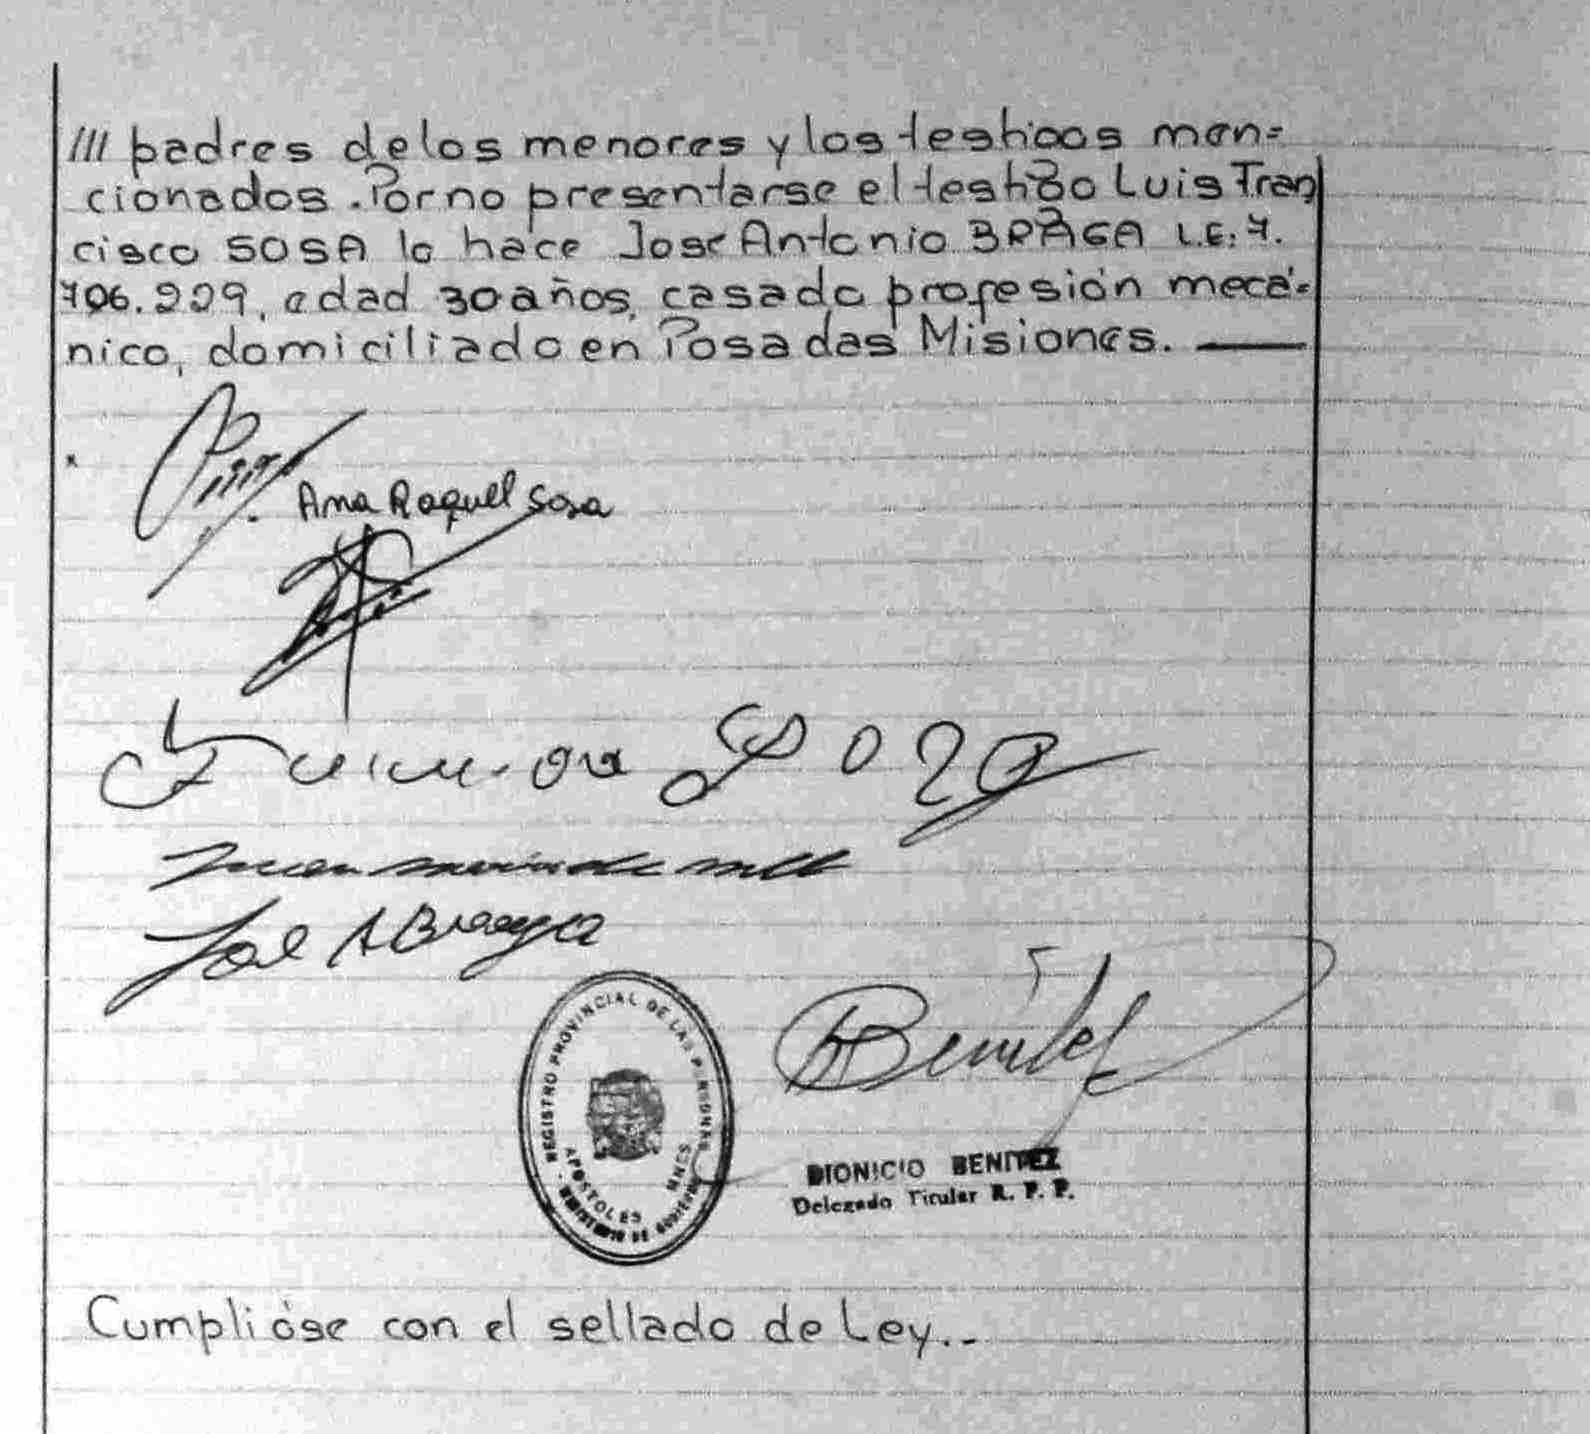 /// padres de los menores y los testigos men=
cionados. Por no presentarse el testigo Luis Fran
cisco SOSA lo hace José Antonio BRAGA L.E: 7.
706.229, edad 30 años, casado profesión mecá=
nico, domiciliado en Posadas Misiones. —
Ana Raquel Sosa
Sosa
José A Braga
REGISTRO PROVINCIAL DE LAS PERSONAS
APOSTOLES MNES
- MINISTERIO DE GOBIERNO
Benitez
DIONICIO BENITEZ
Delegado Titular R. P. P.
Cumplióse con el sellado de Ley..-